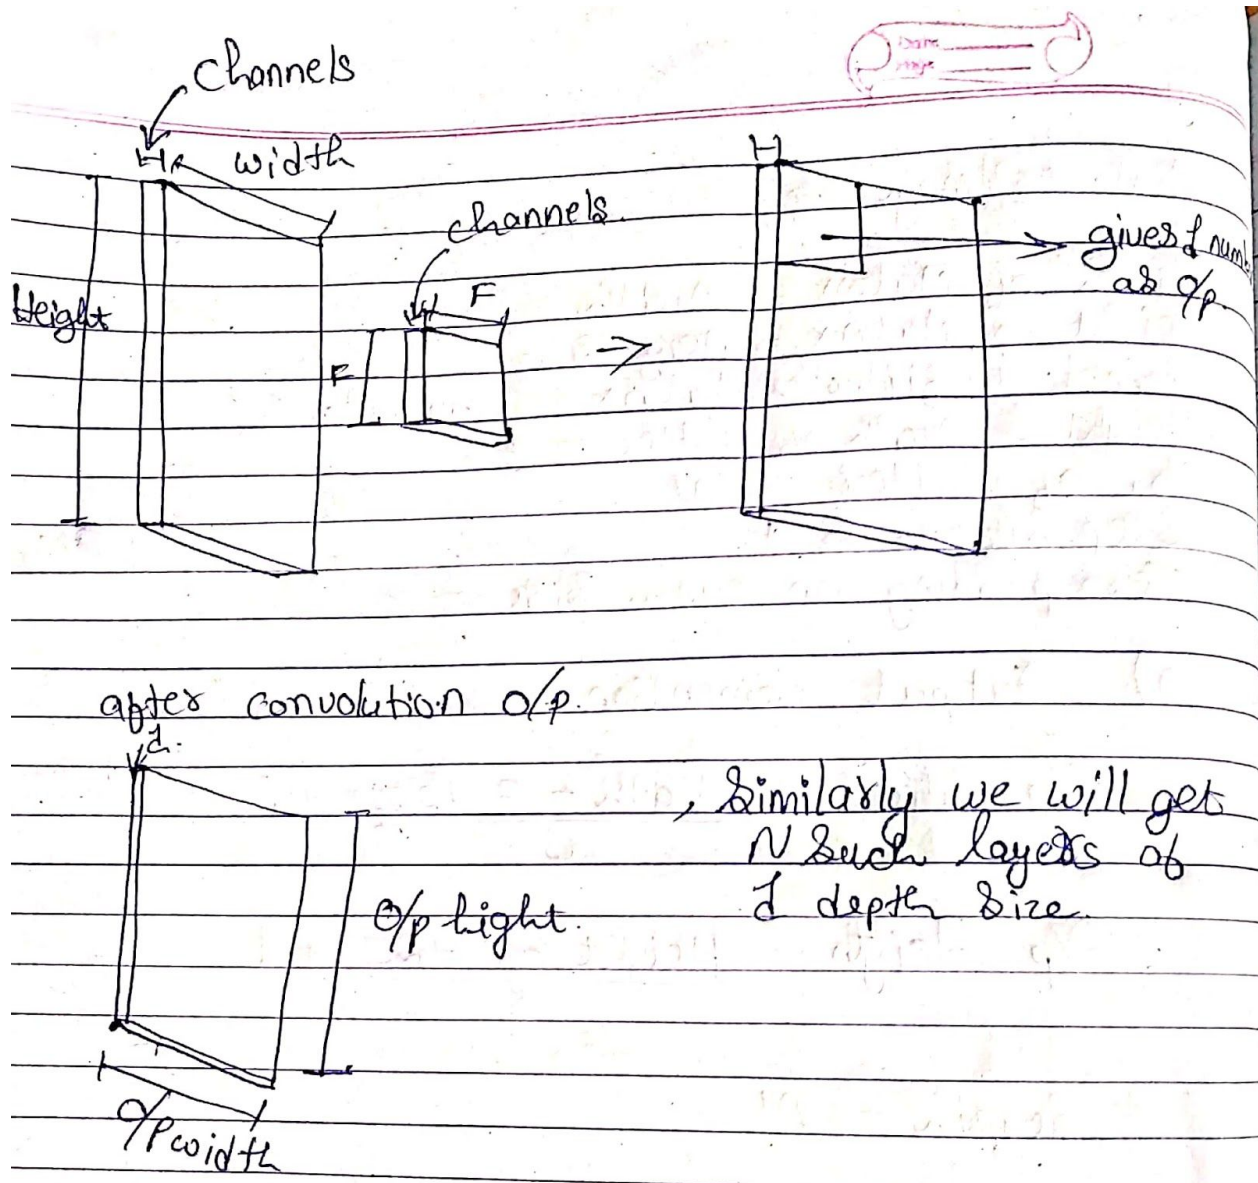 Channels
width
Height
channels.
F
F
gives 1 num
as o/p.
after convolution o/p.
1.
o/p hight.
o/p width
, Similarly we will get
N such layers of
1 depth size.